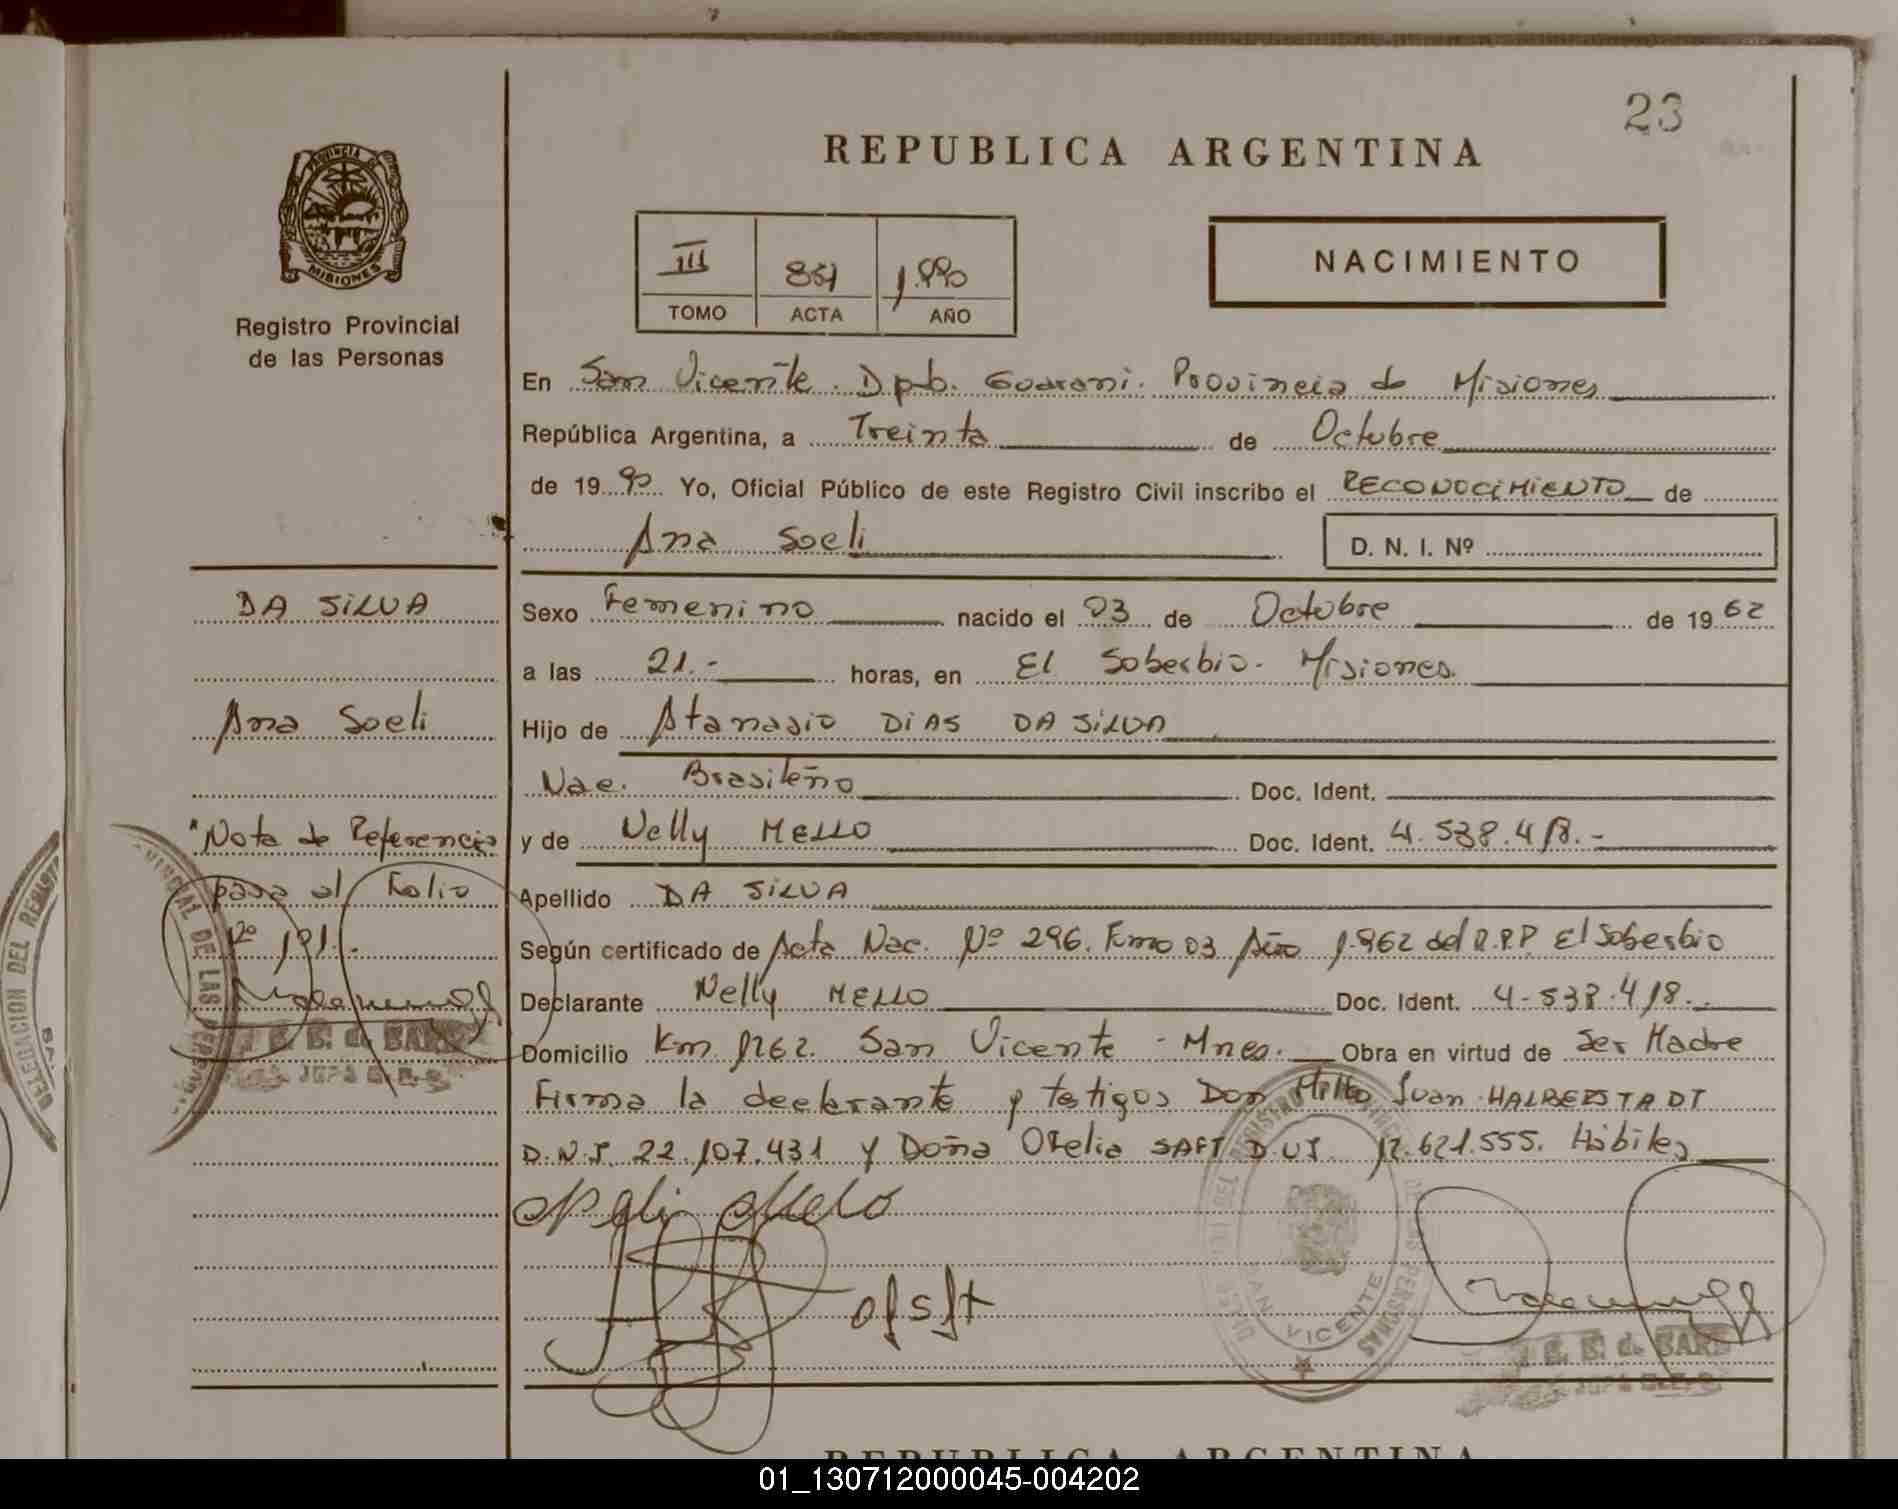 23
REPUBLICA ARGENTINA
PROVINCIA DE
MISIONES
Registro Provincial
de las Personas
III 851 1.990
TOMO ACTA AÑO
NACIMIENTO
En San Vicente. Dpto. Guarani. Provincia de Misiones
República Argentina, a Treinta de Octubre
de 1990 Yo, Oficial Público de este Registro Civil inscribo el RECONOCIMIENTO de
Ana Soeli D. N. I. Nº
DA SILVA
Ana Soeli
"Nota de Referencia
pasa al Folio
Nº 191.-
Sexo Femenino nacido el 03 de Octubre de 1962
a las 21.- horas, en El Soberbio. Misiones.
Hijo de Atanasio DIAS DA SILVA
Nac. Brasileño Doc. Ident.
y de Nelly MELLO Doc. Ident. 4.538.418.-
Apellido DA SILVA
Según certificado de Acta Nac. Nº 296. Tomo 03 Año 1.962 del R.P.P. El Soberbio
Declarante Nelly MELLO Doc. Ident. 4-538.418.-
Domicilio Km 1262. San Vicente - Mnes. Obra en virtud de Ser Madre
Firma la declarante y testigos Don Milto Juan HALBERSTADT
D.N.I. 22.107.431 y Doña Ofelia SAFT D.U.I. 12.621.555. Hábiles
of sft
VICENTE
DELEGACION DEL REGISTRO
REPUBLICA ARGENTINA
01_130712000045-004202